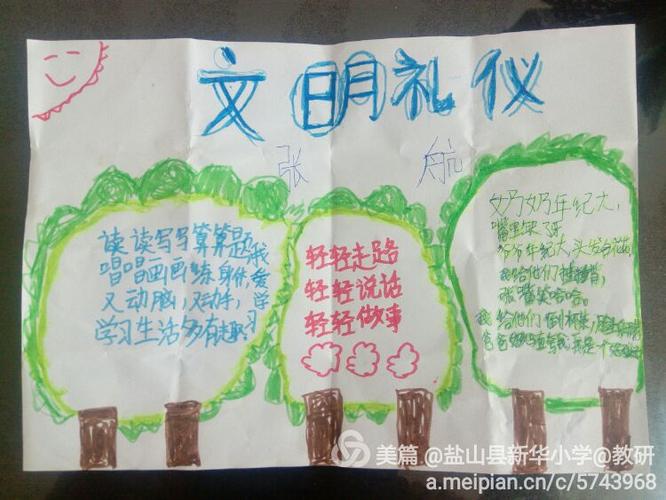 文明礼仪
张 航
读读写写算算题我
唱唱画画练身体,爱
又动脑,又动手,学
学习生活多有趣。习
轻轻走路
轻轻说话
轻轻做事
奶奶年纪大,
嘴里缺了牙
爷爷年纪大,头发白花花,
我给他们捶捶背
张嘴笑哈哈。
我给他们倒杯茶,
美篇 @盐山县新华小学@教研
a.meipian.cn/c/5743968